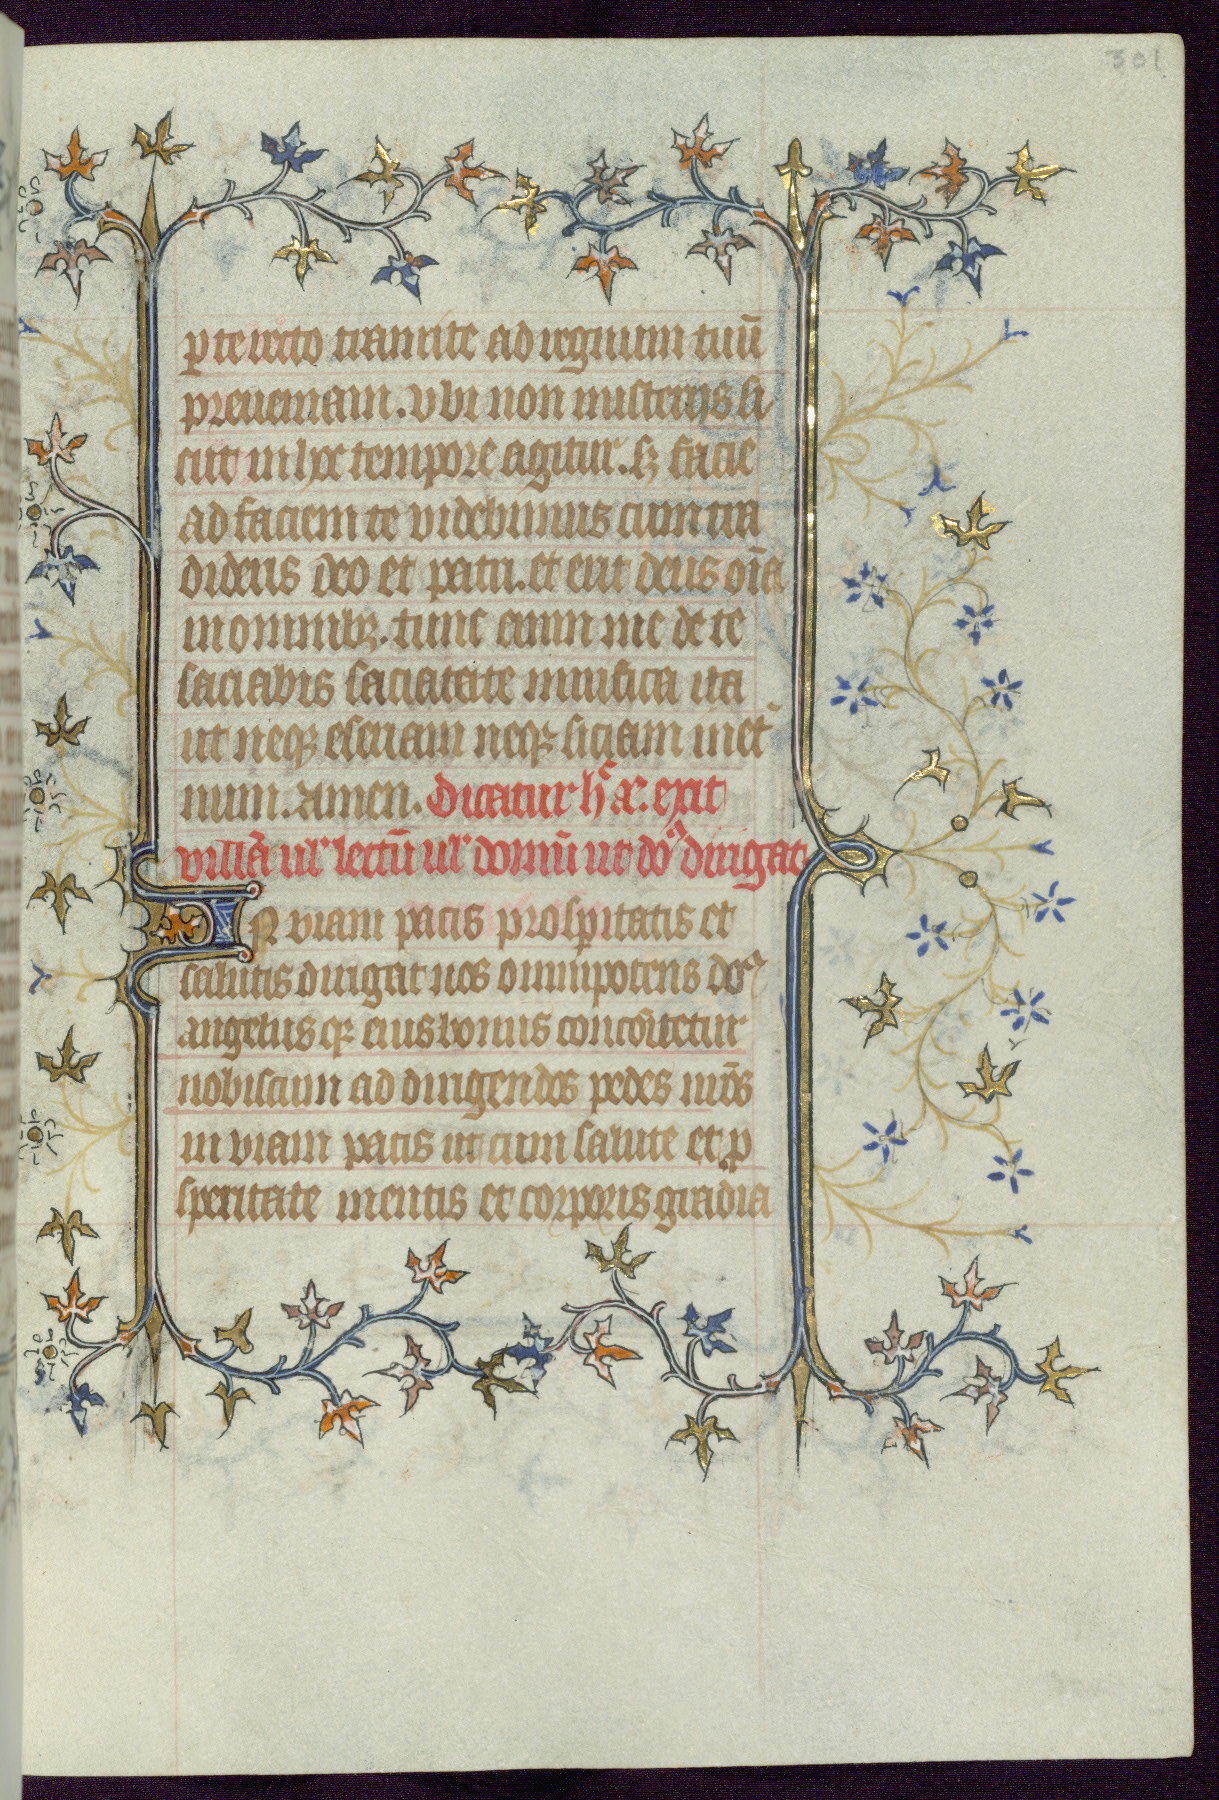 301
p te recto tramite ad regnum tuū
preueniam. vbi non misterijs si
cut in hoc tempore agitur. sꝫ facie
ad faciem te videbimus cum tra
dideris deo et patri. et erit deus oīa
in omnibꝫ. tunc enim me de te
saciabis saciatate mirifica ita
ut neqꝫ esuriam neqꝫ siciam in et̄
num. amen. Dicatur
villā ul' lectū ul' domū ut do dirigat
IN viam pacis prosp̲itatis et
salutis dirigat nos omnipotens
angelus qꝫ eius bonus comitetur
nobiscum ad dirigendos pedes nr̄os
in viam pacis ut cum salute et p
speritate mentis et corporis gradia